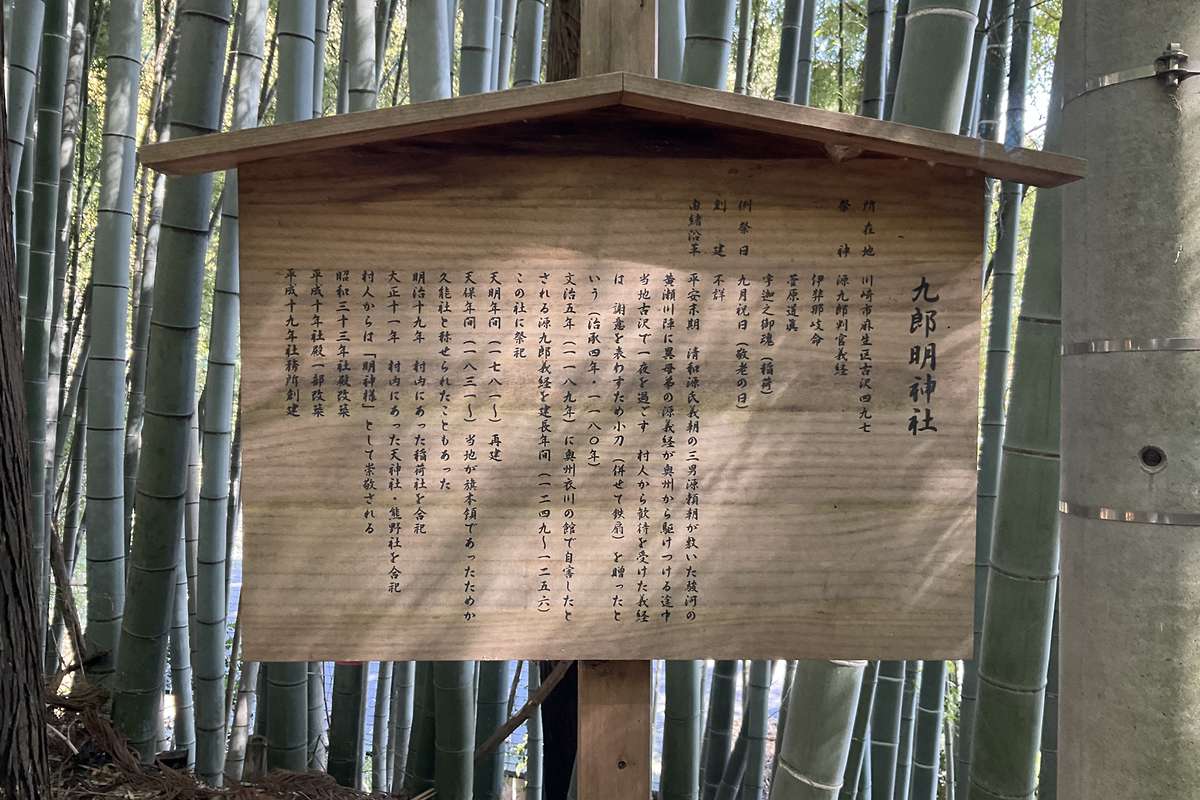 九郎明神社
所在地 川崎市麻生区古沢四九七
祭神 源九郎判官義経
伊弉那岐命
菅原道真
宇迦之御魂（稲荷）
例祭日 九月祝日（敬老の日）
創建 不詳
由緒沿革 平安末期 清和源氏義朝の三男源頼朝が敷いた駿河の
黄瀬川陣に異母弟の源義経が奥州から駆けつける途中
当地古沢で一夜を過ごす 村人から歓待を受けた義経
は 謝意を表わすため小刀（併せて鉄扇）を贈ったと
いう（治承四年・一一八〇年）
文治五年（一一八九年）に奥州衣川の館で自害したと
される源九郎義経を建長年間（一二四九～一二五六）
この社に祭祀
天明年間（一七八一～）再建
天保年間（一八三一～）当地が旗本領であったためか
久能社と称せられたこともあった
明治十九年 村内にあった稲荷社を合祀
大正十一年 村内にあった天神社・熊野社を合祀
村人からは「明神様」として崇敬される
昭和三十三年社殿改築
平成十年社殿一部改築
平成十九年社務所創建